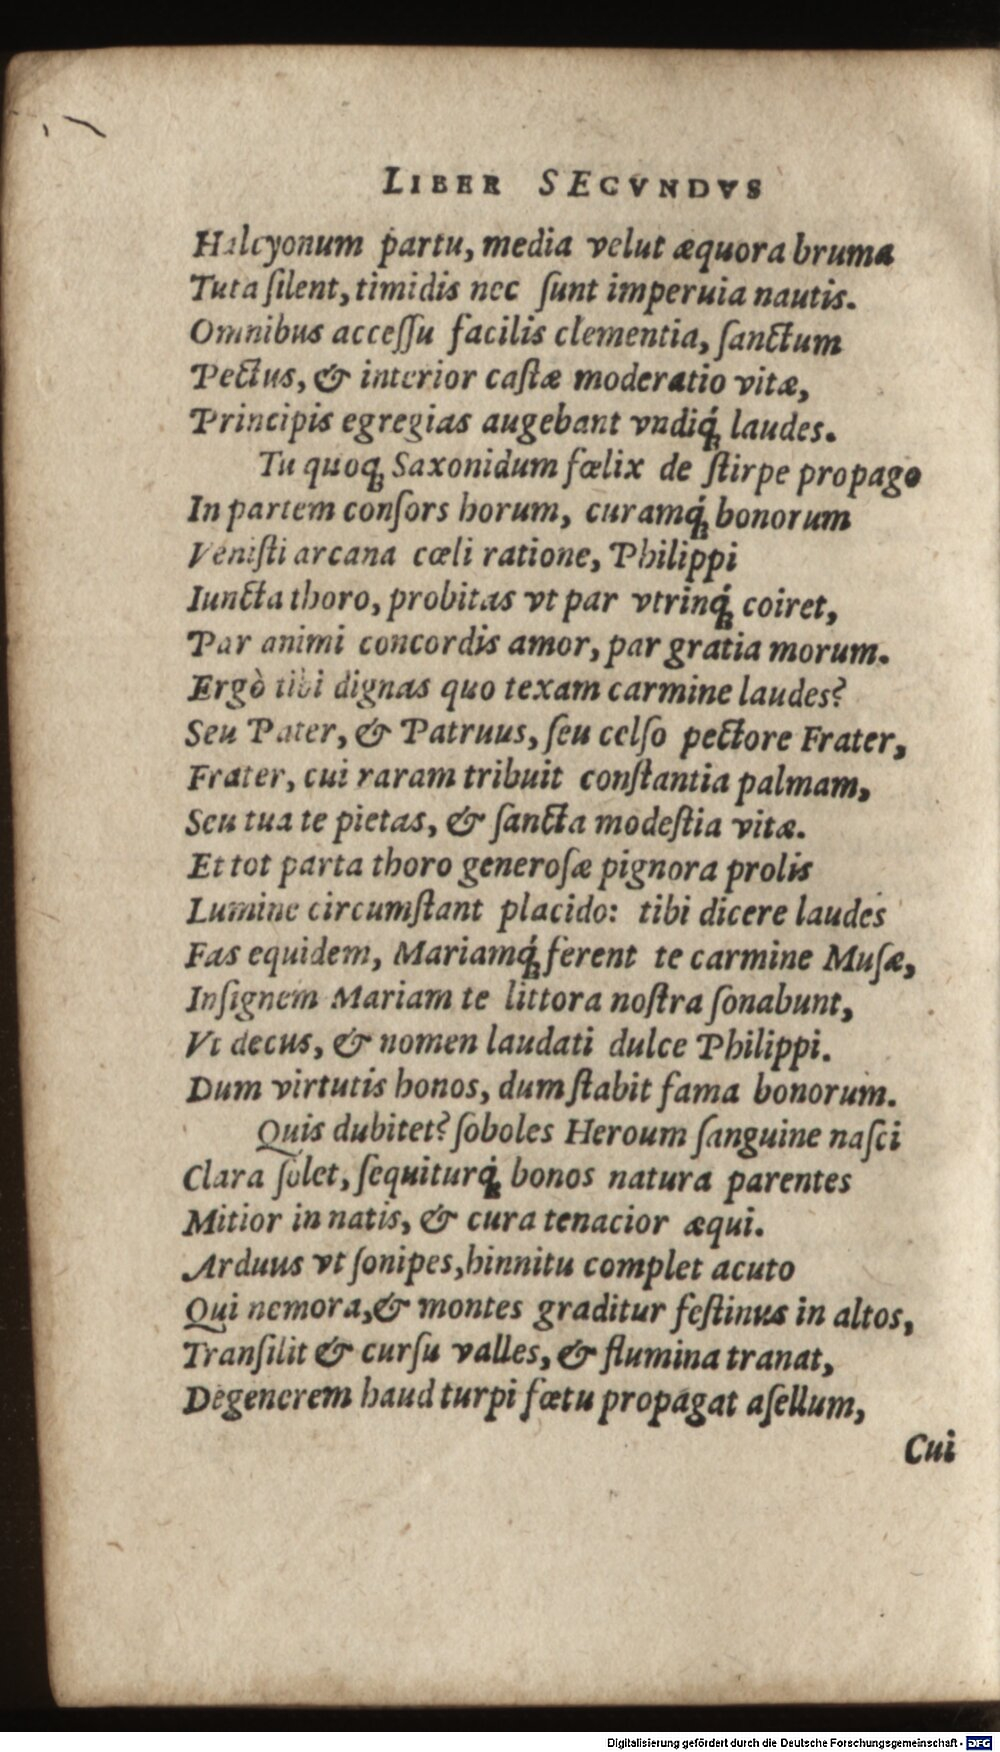 LIBER SECVNDVS
Halcyonum partu, media velut æquora bruma
Tuta ſilent, timidis nec ſunt imperuia nautis.
Omnibus acceſſu facilis clementia, ſanctum
Pectus, & interior caſtæ moderatio vitæ,
Principis egregias augebant vndiq́; laudes.
Tu quoq; Saxonidum fœlix de ſtirpe propago
In partem conſors horum, curamq́; bonorum
Veniſti arcana cœli ratione, Philippi
Iuncta thoro, probitas vt par vtrinq́; coiret,
Par animi concordis amor, par gratia morum.
Ergò tibi dignas quo texam carmine laudes?
Seu Pater, & Patruus, ſeu celſo pectore Frater,
Frater, cui raram tribuit conſtantia palmam,
Seu tua te pietas, & ſancta modeſtia vitæ.
Et tot parta thoro generoſæ pignora prolis
Lumine circumſtant placido: tibi dicere laudes
Fas equidem, Mariamq́; ferent te carmine Muſæ,
Inſignem Mariam te littora noſtra ſonabunt,
Vt decus, & nomen laudati dulce Philippi.
Dum virtutis honos, dum ſtabit fama bonorum.
Quis dubitet? ſoboles Heroum ſanguine naſci
Clara ſolet, ſequiturq́; bonos natura parentes
Mitior in natis, & cura tenacior æqui.
Arduus vt ſonipes, hinnitu complet acuto
Qui nemora, & montes graditur feſtinus in altos,
Tranſilit & curſu valles, & flumina tranat,
Degenerem haud turpi fœtu propagat aſellum,
Cui
Digitalisierung gefördert durch die Deutsche Forschungsgemeinschaft - DFG